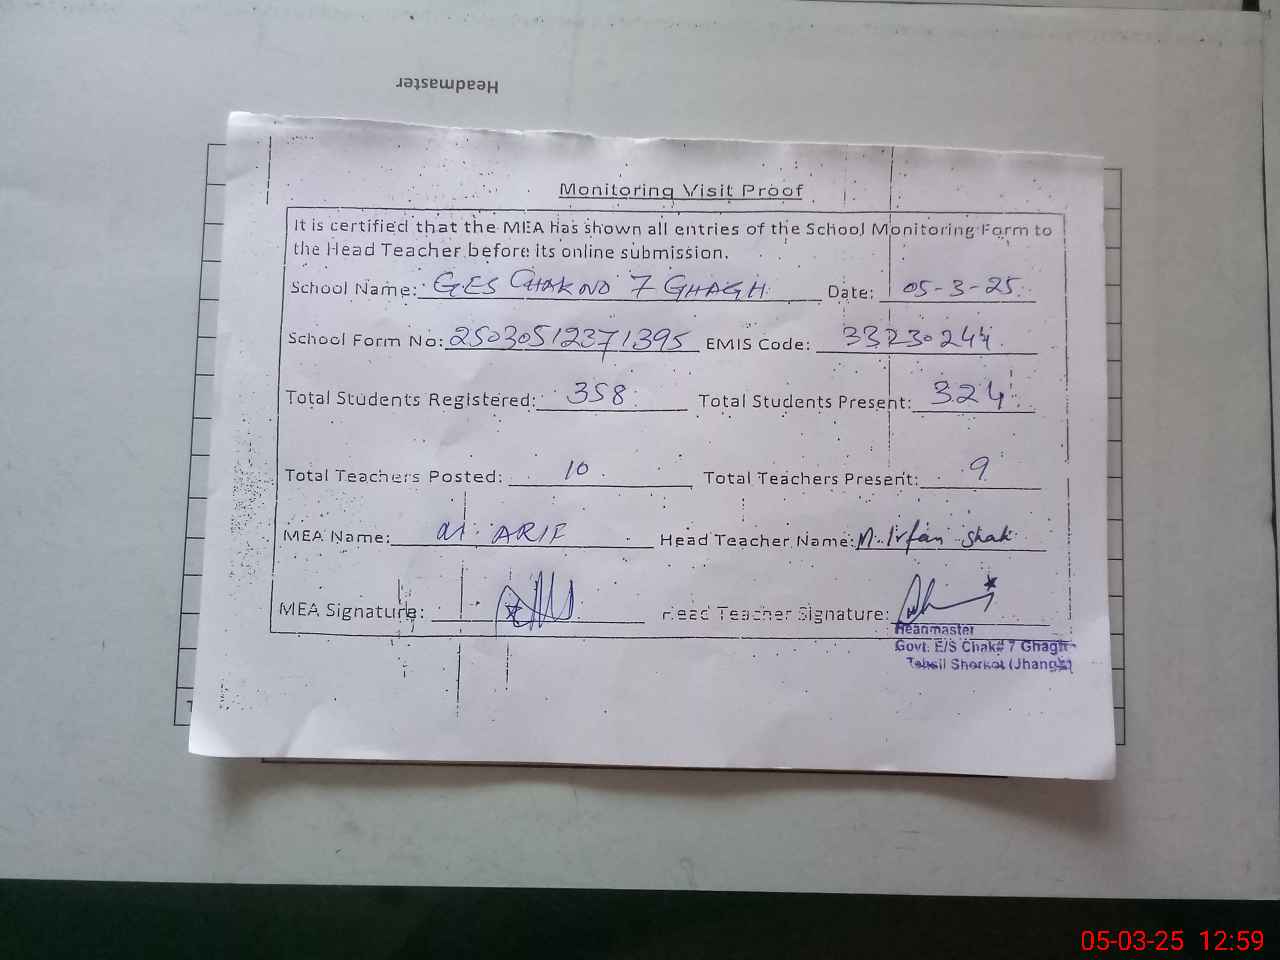 Headmaster
Monitoring Visit Proof
It is certified that the MEA has shown all entries of the School Monitoring Form to
the Head Teacher before its online submission.
School Name: GES CHAK NO 7 GHAGH Date: 05-3-25
School Form No: 25030512371395 EMIS Code: 33230244
Total Students Registered: 358 Total Students Present: 324
Total Teachers Posted: 10 Total Teachers Present: 9
MEA Name: M. ARIF Head Teacher Name: M. Irfan Shah
MEA Signature: Head Teacher Signature:
Headmaster
Govt: E/S Chak# 7 Ghagh
Tehsil Shorkot (Jhang)
05-03-25 12:59